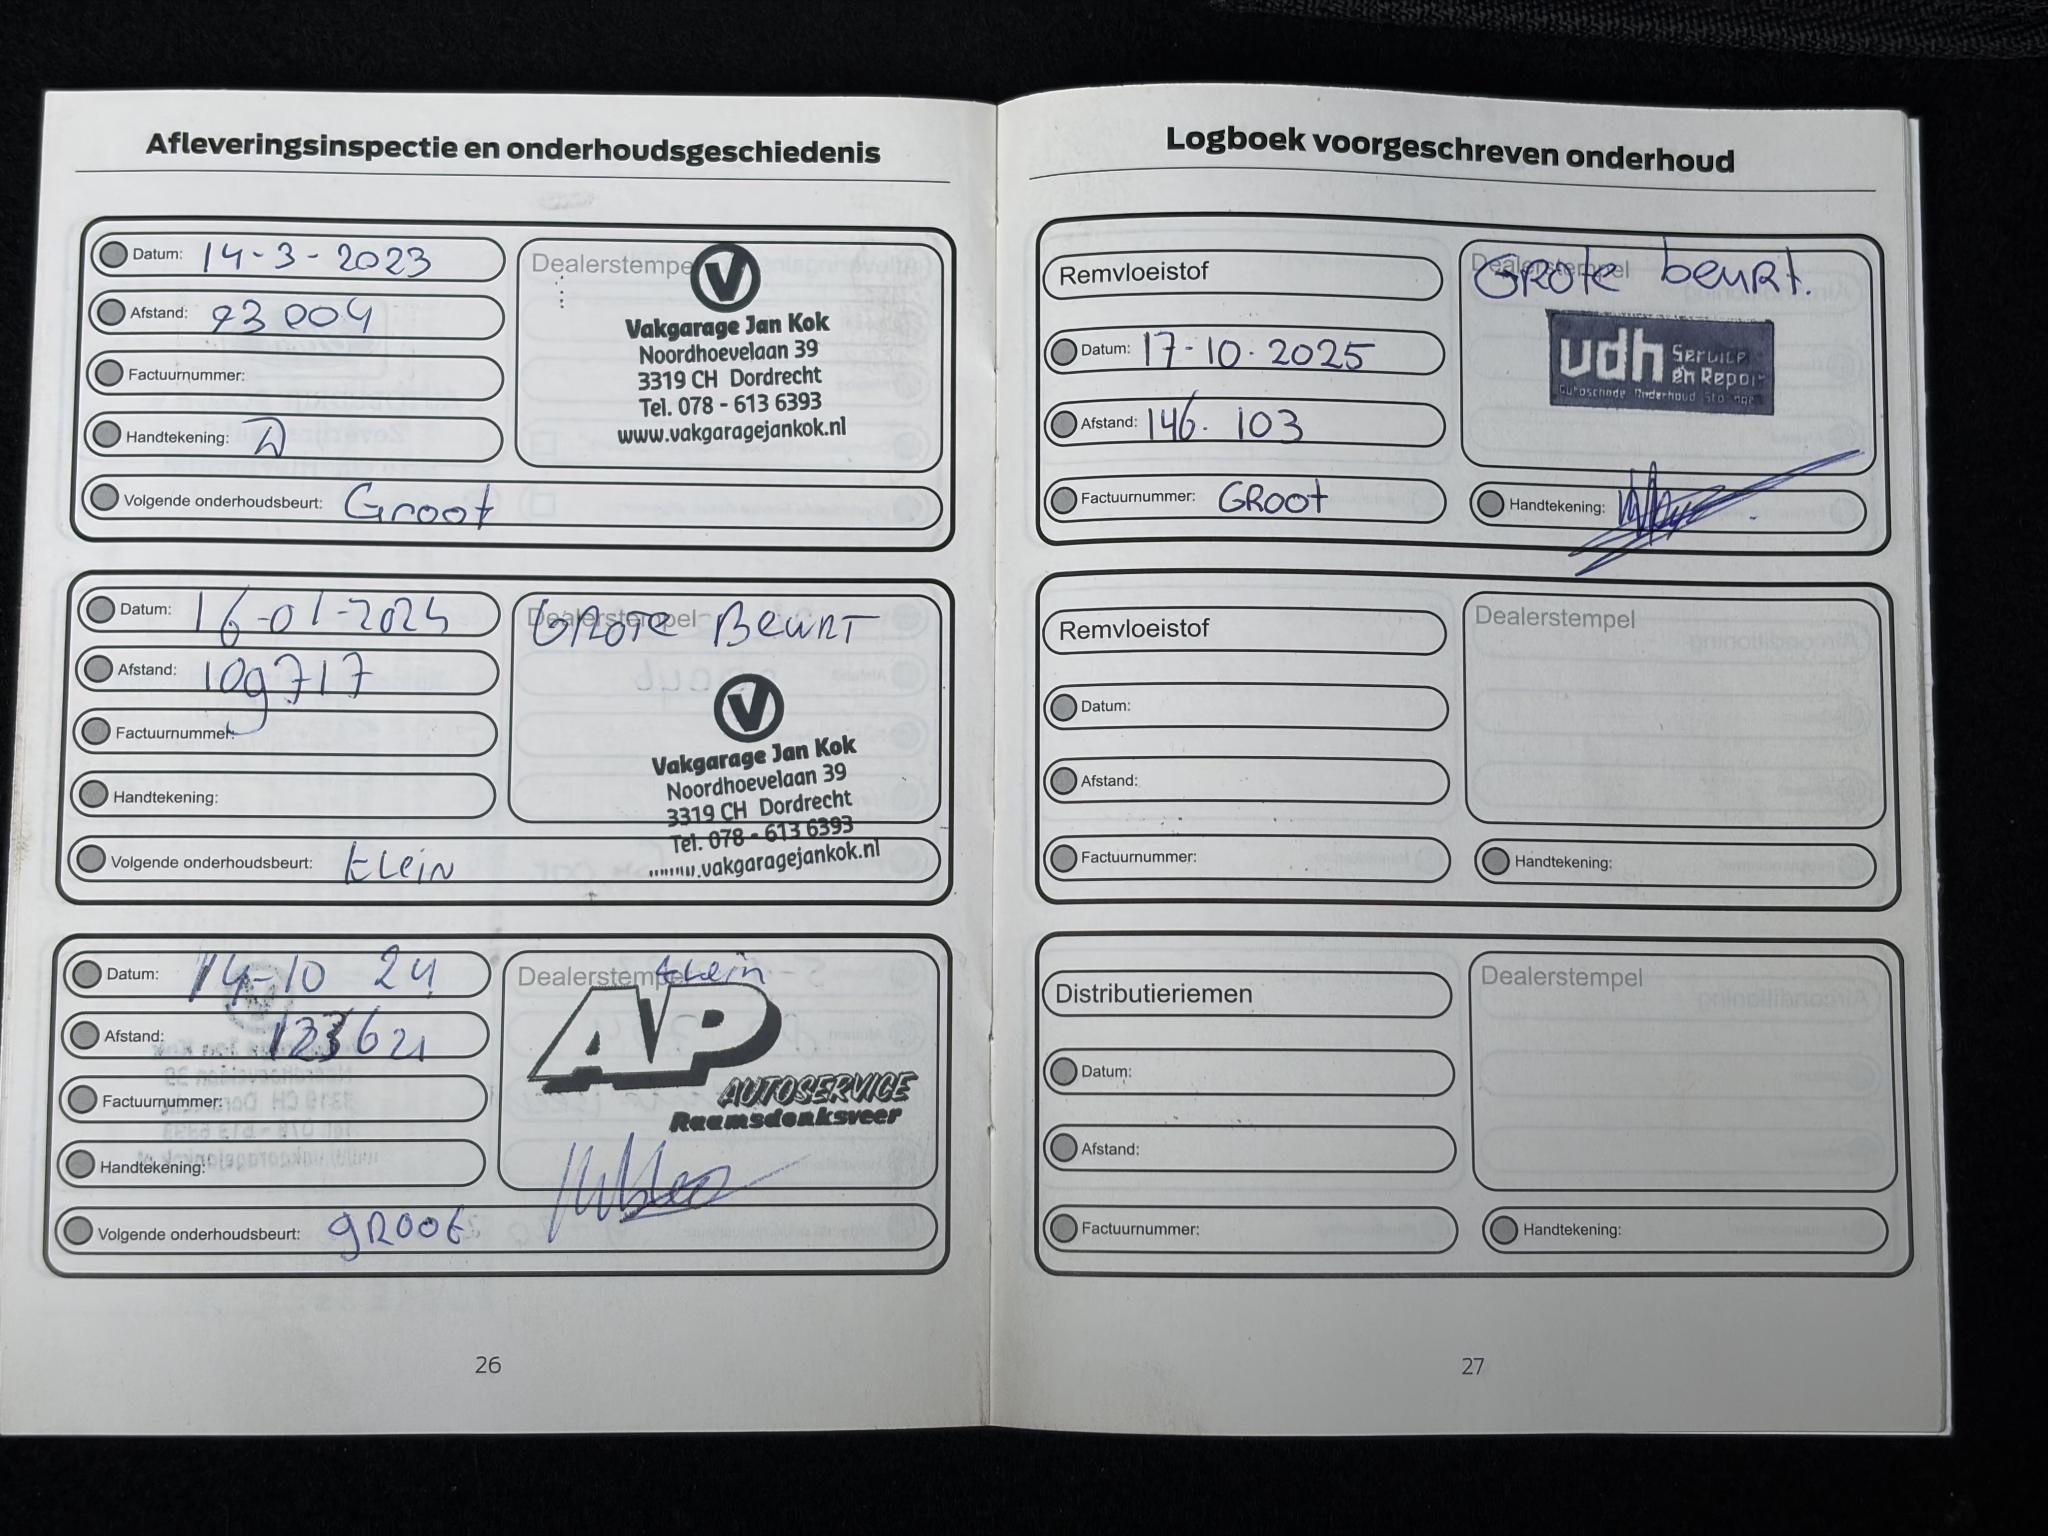 Afleveringsinspectie en onderhoudsgeschiedenis
Datum: 14-3-2023
Afstand: 93004
Factuurnummer:
Handtekening:
Volgende onderhoudsbeurt: Groot
Dealerstempel
V
Vakgarage Jan Kok
Noordhoevelaan 39
3319 CH Dordrecht
Tel. 078 - 613 6393
www.vakgaragejankok.nl
Datum: 16-01-2024
Afstand: 109717
Factuurnummer:
Handtekening:
Volgende onderhoudsbeurt: klein
Dealerstempel
GROTE BEURT
V
Vakgarage Jan Kok
Noordhoevelaan 39
3319 CH Dordrecht
Tel. 078 - 613 6393
.vakgaragejankok.nl
Datum: 14-10 24
Afstand: 123621
Factuurnummer:
Handtekening:
Volgende onderhoudsbeurt: gROOt
Dealerstempel
klein
AP
AUTOSERVICE
Raamsdonksveer
26
Logboek voorgeschreven onderhoud
Remvloeistof
Datum: 17-10-2025
Afstand: 146.103
Factuurnummer: GROOt
Dealerstempel
GROte beuRt.
vdh Service
en Repar
Autoschade Onderhoud Storingen
Handtekening:
Remvloeistof
Datum:
Afstand:
Factuurnummer:
Dealerstempel
Handtekening:
Distributieriemen
Datum:
Afstand:
Factuurnummer:
Dealerstempel
Handtekening:
27